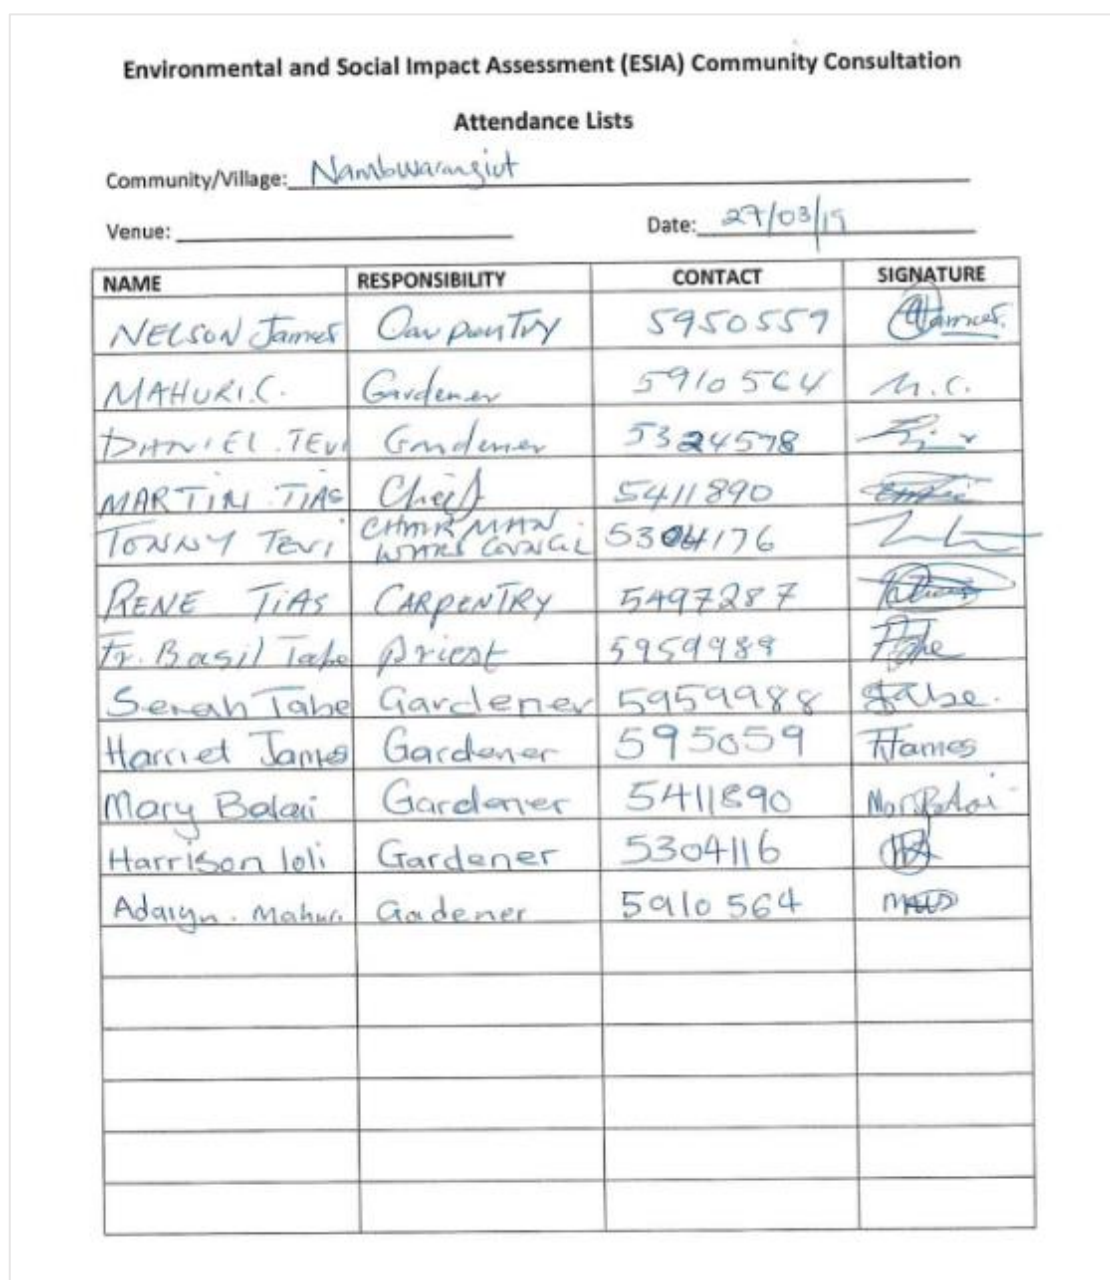 Environmental and Social Impact Assessment (ESIA) Community Consultation
Attendance Lists
Community/Village: Nambwarangiut
Venue: Date: 27/03/19
NAME RESPONSIBILITY CONTACT SIGNATURE
NELSON James Carpentry 5950559 James.
MAHURI.C. Gardener 5910564 M.C.
DANIEL.TEVI Gardener 5324578
MARTIN TIAS Chief 5411890
TONNY TEVI CHAIRMAN COUNCIL 5304176
RENE TIAS CARPENTRY 5497287
Fr. Basil Tabe Priest 5959989 Tabe
Serah Tabe Gardener 5959988 Stabe.
Harriet James Gardener 595059 HJames
Mary Balai Gardener 5411890 Mary Balai
Harrison loli Gardener 5304116
Mahuri Gadener 5910564